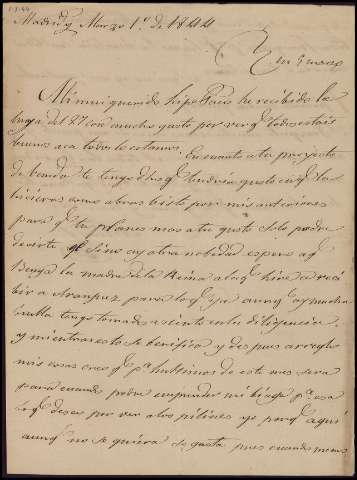 Madrid y Marzo 1.º de 1844
Mi mui querido hijo Paco he recibido la
tuya del 27 con mucho gusto por ver q.e todos estais
buenos aca todos lo estamos. En cuanto a tu proyecto
de benida te tengo dho q.e tendria gusto en q.e la
icieras como abras bisto por mis anteriores
para q.e tu planes mas a tu gusto solo podre
decirte q.e si no ay otra nobedad espero a q.e
benga la madre de la Reina a la q.e hire a reci
bir a Aranjuez para lo q.e ya aunq.e ay mucha
bulla tengo tomados asiento en la diligencia
y mientras esto se berifica y des pues arreglo
mis cosas creo q.e p.a ultimos de este mes sera
para cuando podre emprender mi biage p.a esa
q.e deseo por ver a los pitines y porq.e aqui
aunq.e no se quiera se gasta pues cuando menos